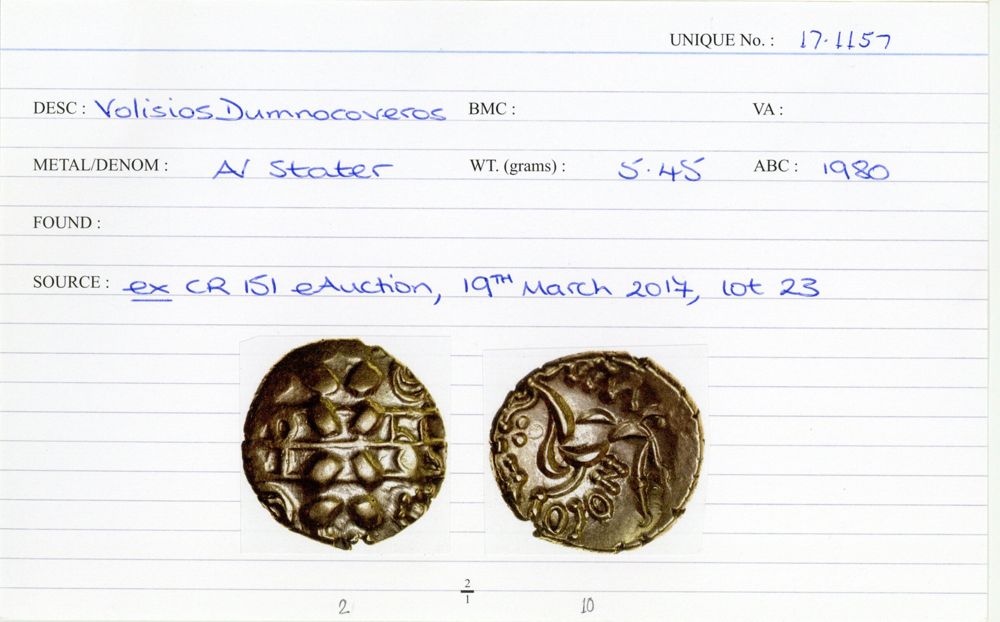 UNIQUE No. : 17·1157
DESC : Volisios Dumnocoveros BMC : VA :
METAL/DENOM : AV Stater WT. (grams) : 5.45 ABC : 1980
FOUND :
SOURCE : ex CR 151 eAuction, 19TH March 2017, lot 23
2
1
2 10